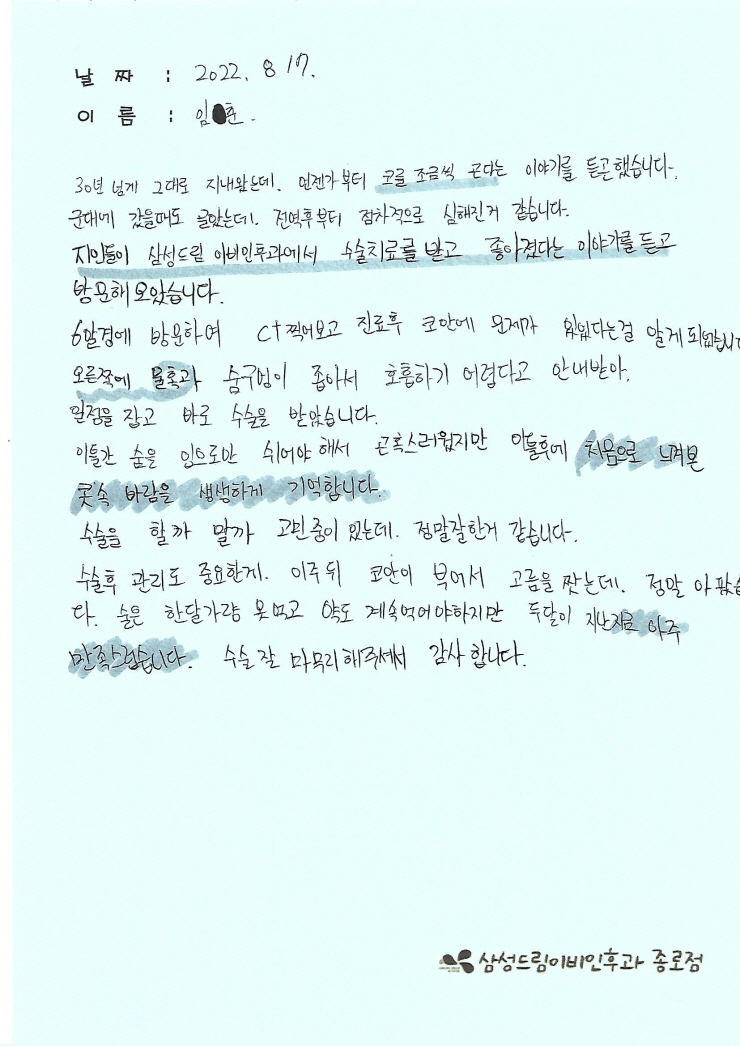 날 짜 : 2022. 8 17.
이 름 : 임 춘.
30년 넘게 그대로 지내왔는데. 언젠가부터 코를 조금씩 곤다는 이야기를 듣곤했습니다.
군대에 갔을때도 골았는데. 전역후부터 점차적으로 심해진거 같습니다.
지인들이 삼성드림 이비인후과에서 수술치료를 받고 좋아졌다는 이야기를 듣고
방문해보았습니다.
6말경에 방문하여 Ct찍어보고 진료후 코안에 문제가 있었다는걸 알게되었습니다
오른쪽에 물혹과 숨구멍이 좁아서 호흡하기 어렵다고 안내받아.
일정을 잡고 바로 수술을 받았습니다.
이틀간 숨을 입으로만 쉬어야 해서 곤혹스러웠지만 이틀후에 처음으로 느껴본
콧속 바람을 생생하게 기억합니다.
수술을 할까 말까 고민중이 있는데. 정말잘한거 같습니다.
수술후 관리도 중요한게. 이주뒤 코안이 부어서 고름을 짰는데. 정말 아팠습
다. 술은 한달가량 못먹고 약도 계속먹어야하지만 두달이 지난지금 아주
만족스럽습니다. 수술 잘 마무리해주셔서 감사합니다.
삼성드림이비인후과 종로점